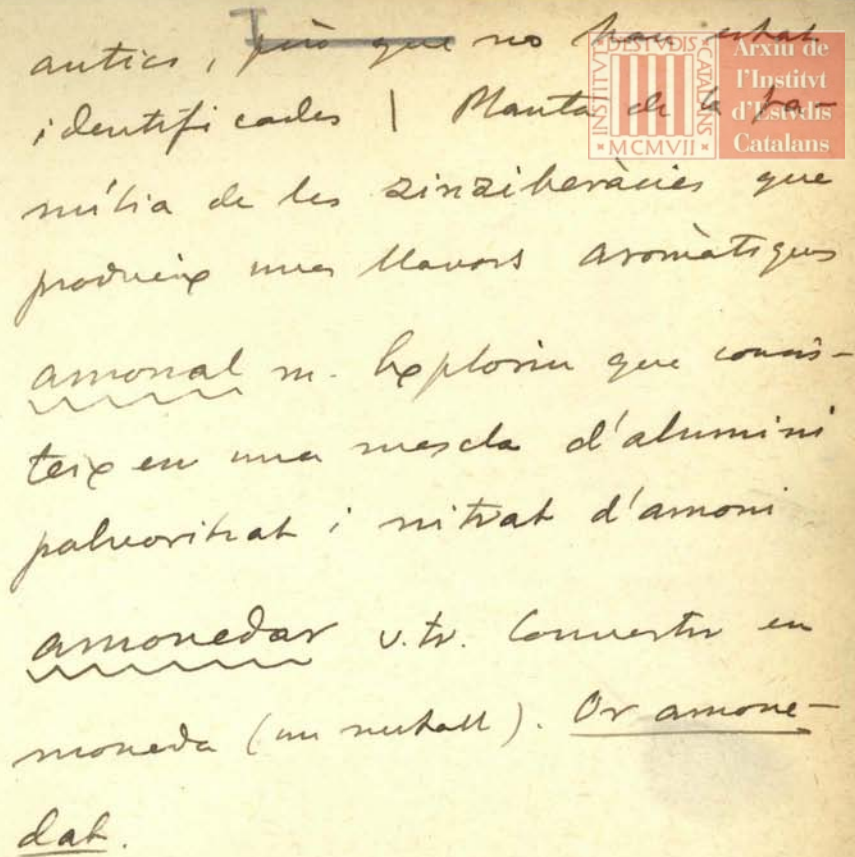 antics, però que no han estat
identificades | Planta de la fa-
mília de les zinziberàcies que
produeix unes llavors aromàtiques
amonal m. Explosiu que consis-
teix en una mescla d'alumini
polvoritzat i nitrat d'amoni
amonedar v.tr. Convertir en
moneda (un metall). Or amone-
dat.
INSTITVT D'ESTVDIS CATALANS
MCMVII
Arxiu de
l'Institvt
d'Estvdis
Catalans